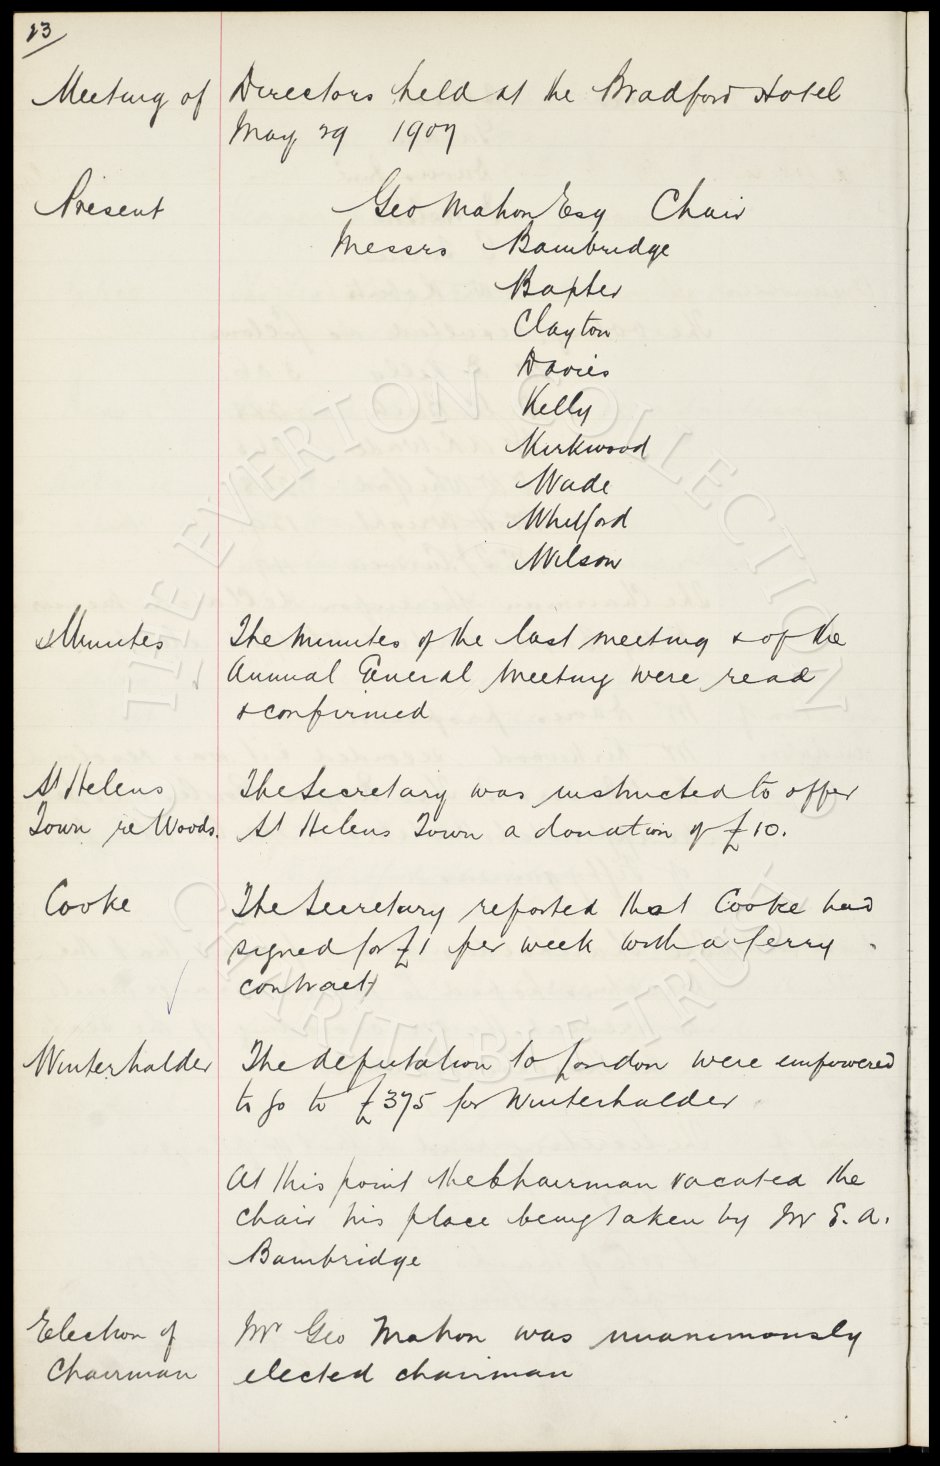 23
Meeting of Directors held at the Bradford Hotel
May 29 1907
Present Geo Mahon Esq Chair
Messrs Bambridge
Baxter
Clayton
Davies
Kelly
Kirkwood
Wade
Whitford
Wilson
Minutes The Minutes of the last meeting & of the
Annual General Meeting were read
& confirmed
St Helens The Secretary was instructed to offer
Town re Woods. St Helens Town a donation of £10.
Cooke The Secretary reported that Cooke had
signed for £1 per week with a ferry
contract
Winterhalder The deputation to London were empowered
to go to £375 for Winterhalder
At this point the Chairman vacated the
chair his place being taken by Mr E. A.
Bambridge
Election of Mr Geo Mahon was unanimously
Chairman elected chairman
THE EVERTON COLLECTION
CHARITABLE TRUST